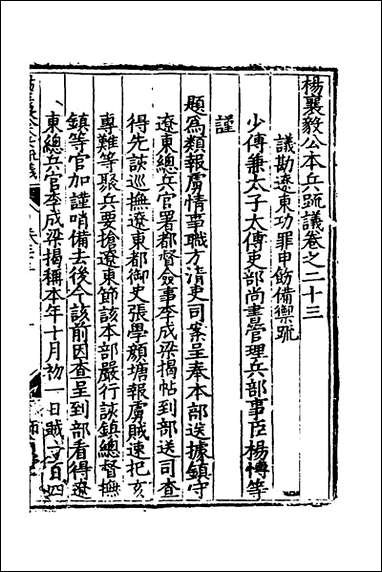 楊襄毅公本兵疏議卷之二十三
議勘遼東功罪申飭備禦疏
少傅兼太子太傅吏部尚書管理兵部事臣楊博等
謹
題為類報虜情事職方清吏司案呈奉本部送據鎮守
遼東總兵官署都督僉事李成梁揭帖到部送司查
得先該巡撫遼東都御史張學顏塘報虜賊速把亥
專難等聚兵要搶遼東節該本部嚴行該鎮總督撫
鎮等官加謹哨備去後今該前因查呈到部看得遼
東總兵官李成梁揭稱本年十月初一日賊
百四